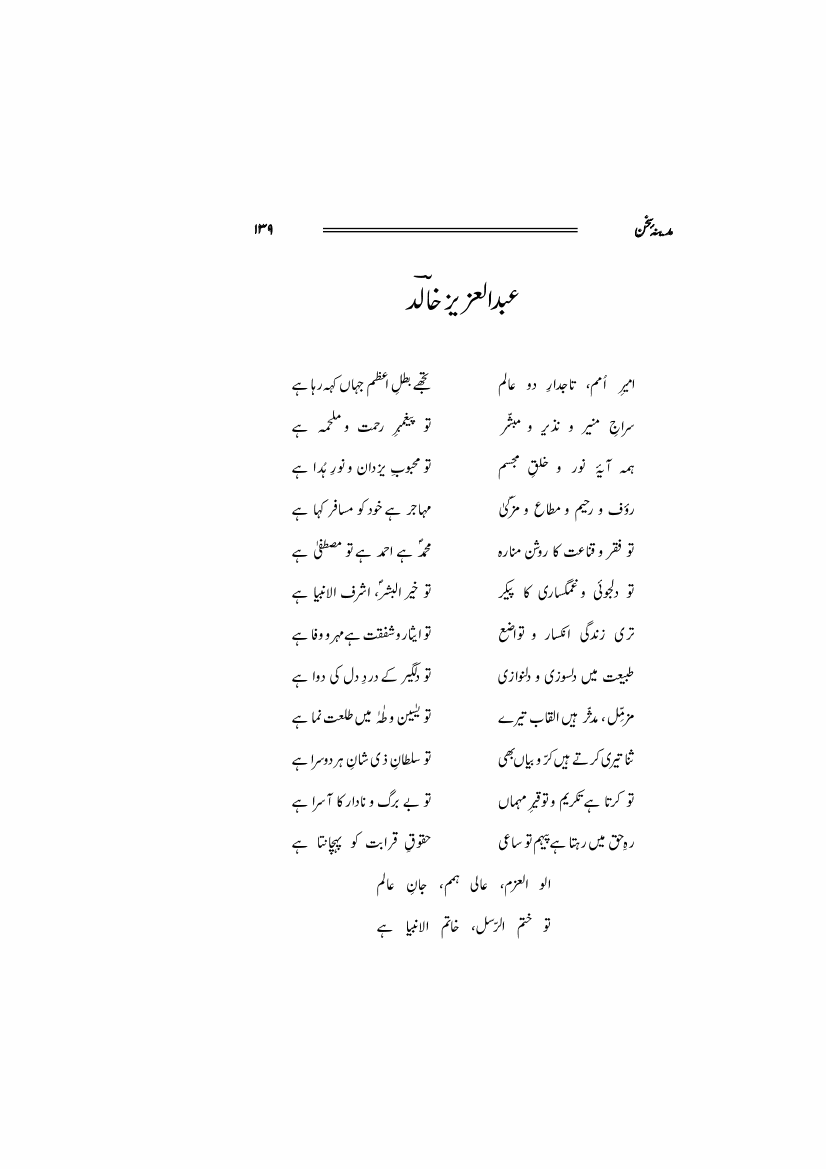 مدینہ سخن ۱۳۹
عبدالعزیز خالد
امیرِ اُمم، تاجدارِ دو عالم تجھے بطلِ اعظم جہاں کہہ رہا ہے
سراجِ منیر و نذیر و مبشّر تو پیغمبرِ رحمت و ملحمہ ہے
ہمہ آیۂ نور و خلقِ مجسم تو محبوبِ یزدان و نورِ ہُدا ہے
رؤف و رحیم و مطاع و مزکّیٰ مہاجر ہے خود کو مسافر کہا ہے
تو فقر و قناعت کا روشن منارہ محمدؐ ہے احمد ہے تو مصطفیٰ ہے
تو دلجوئی و غمگساری کا پیکر تو خیر البشرؐ، اشرف الانبیا ہے
تری زندگی انکسار و تواضع تو ایثار و شفقت ہے مہر و وفا ہے
طبیعت میں دلسوزی و دلنوازی تو دلگیر کے دردِ دل کی دوا ہے
مزمّل، مدثّر ہیں القاب تیرے تو یٰسین و طٰہٰ میں طلعت نما ہے
ثنا تیری کرتے ہیں کرّ و بیاں بھی تو سلطانِ ذی شانِ ہر دوسرا ہے
تو کرتا ہے تکریم و توقیرِ مہماں تو بے برگ و نادار کا آسرا ہے
رہِ حق میں رہتا ہے پیہم تو ساعی حقوقِ قرابت کو پہچانتا ہے
الو العزم، عالی ہمم، جانِ عالم
تو ختم الرّسل، خاتم الانبیا ہے